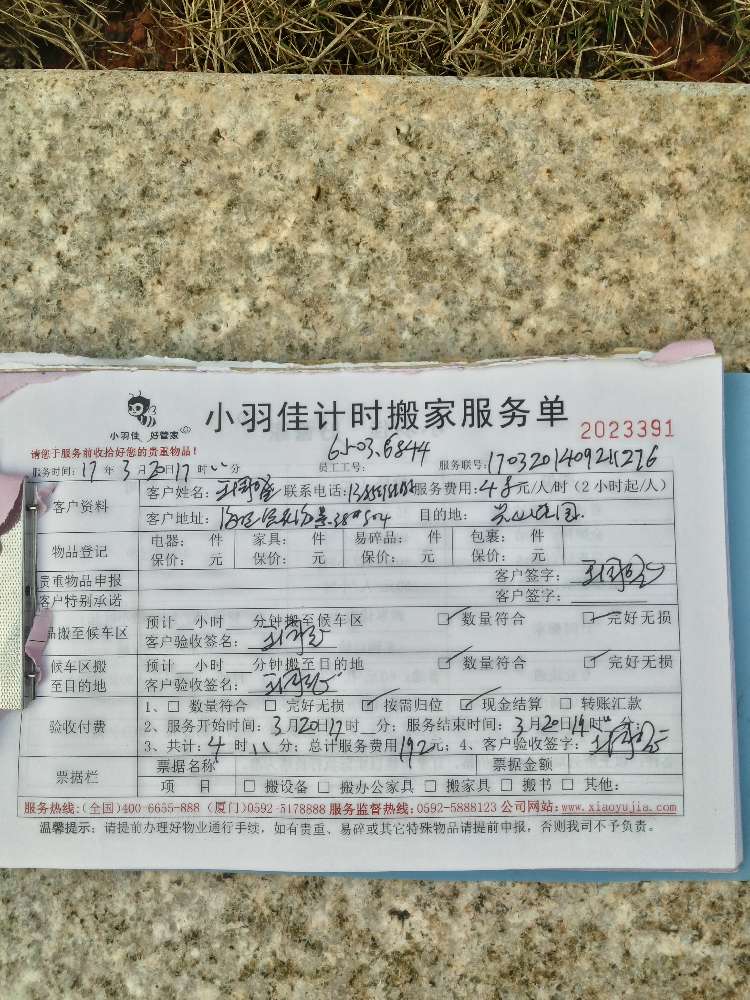 小羽佳 好管家
小羽佳计时搬家服务单
2023391
请您于服务前收拾好您的贵重物品!
6503.6844
服务时间: 17 年 3 月 20 日 17 时 分 员工工号: 服务联号: 170320140921276
客户资料
客户姓名: 联系电话: 服务费用: 48 元/人/时 (2 小时起/人)
客户地址: 目的地:
物品登记
电器: 件 家具: 件 易碎品: 件 包裹: 件
保价: 元 保价: 元 保价: 元 保价: 元
贵重物品申报 客户签字:
客户特别承诺 客户签字:
品搬至候车区
预计 小时 分钟搬至候车区 数量符合 完好无损
客户验收签名:
候车区搬至目的地
预计 小时 分钟搬至目的地 数量符合 完好无损
客户验收签名:
验收付费
1、 数量符合 完好无损 按需归位 现金结算 转账汇款
2、服务开始时间: 3 月 20 日 17 时 分; 服务结束时间: 3 月 20 日 19 时 分;
3、共计: 4 时 分; 总计服务费用 192 元; 4、客户验收签字:
票据栏
票据名称 票据金额
项 目 搬设备 搬办公家具 搬家具 搬书 其他:
服务热线:(全国)400-6655-888 (厦门)0592-5178888 服务监督热线:0592-5888123 公司网站:www.xiaoyujia.com
温馨提示: 请提前办理好物业通行手续, 如有贵重、易碎或其它特殊物品请提前申报, 否则我司不予负责。